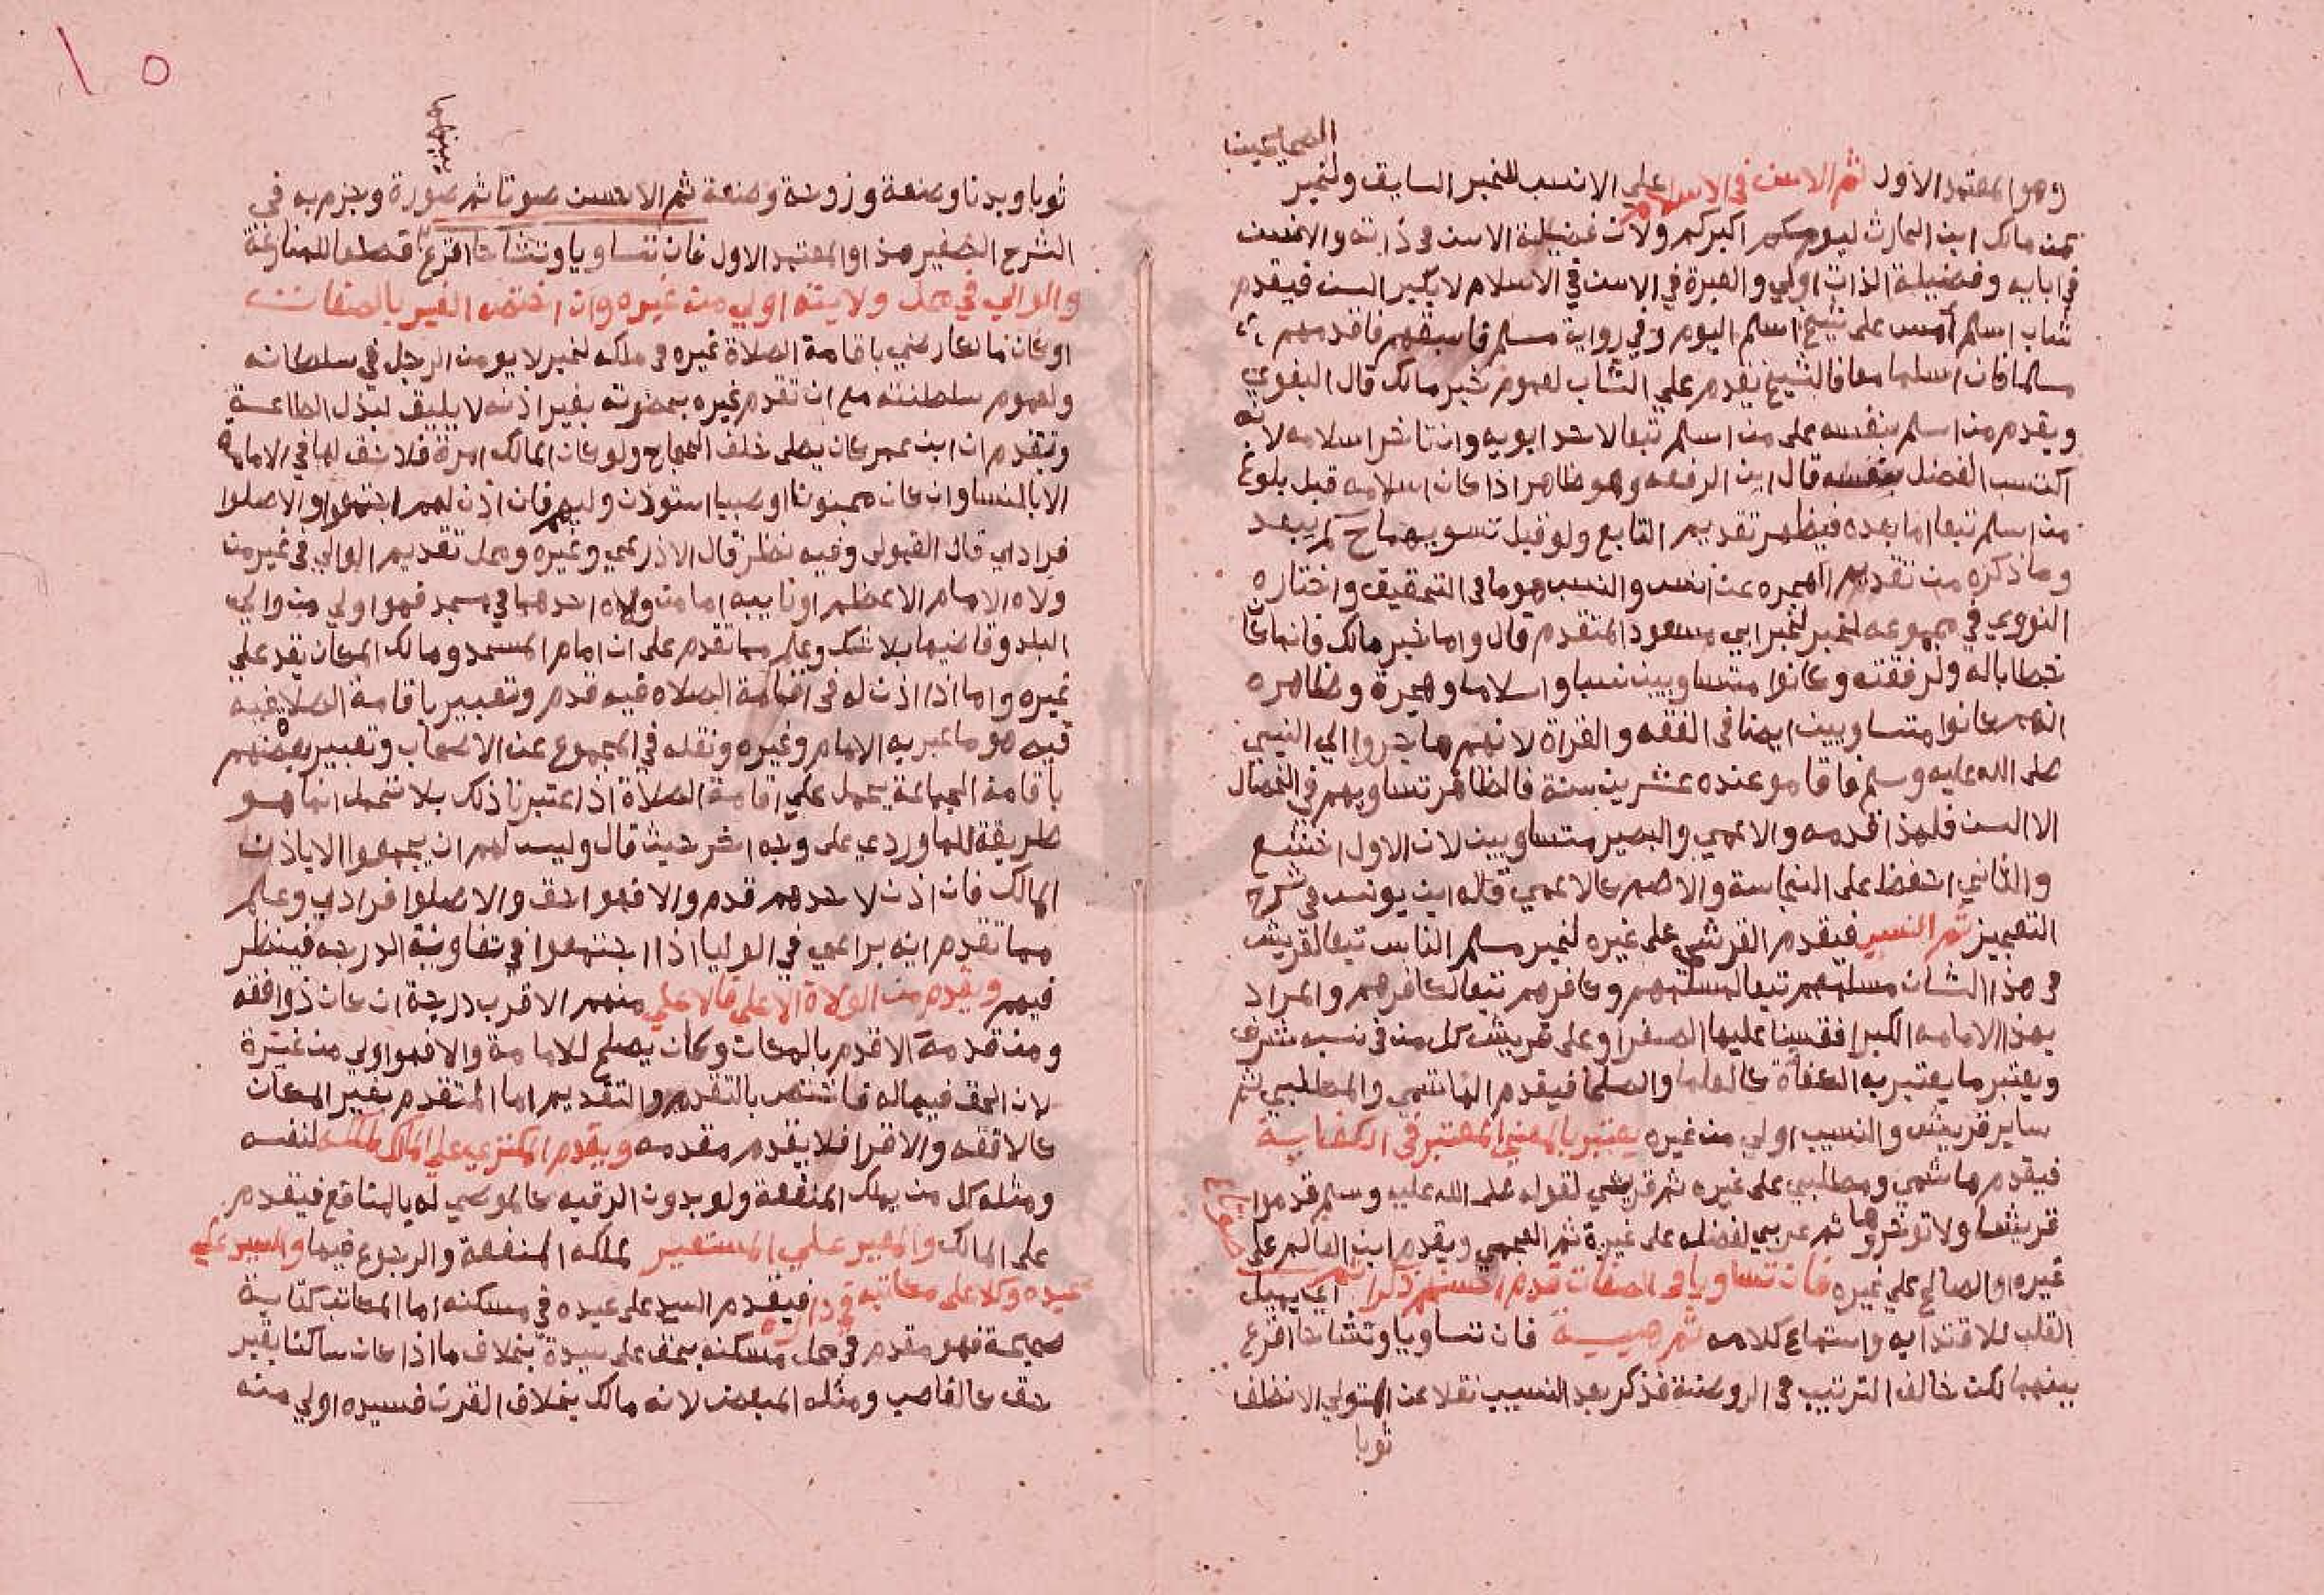 الصحيحين
وهو المعتمد الاول ثم الاسن في الاسلام على الانسب للخبر السابق ولخبر
عن مالك ابن الحارث ليومكم اكبركم ولان فضيلة الاسن في ذاته والانسب
في ابايه وفضيلة الذات اولي والعبرة في الاسن في الاسلام لا بكبر السن فيقدم
شاب اسلم امس على شيخ اسلم اليوم وفي رواية مسلم فاسبقهم فاقدمهم
سلما فان اسلما معا فالشيخ يقدم علي الشاب لعموم خبر مالك قال البغوي
ويقدم من اسلم بنفسه على من اسلم تبعا لاحد ابويه وان تاخر اسلامه لانه
اكتسب الفضل بنفسه قال ابن الرفعه وهو ظاهر اذا كان اسلامه قبل بلوغ
من اسلم تبعا اما بعده فيظهر تقديم التابع ولو قيل تسويهما ح لم يبعد
وما ذكره من تقديم الهجره عن النسب هو ما في التحقيق واختاره
النووي في مجموعه لخبر ابي مسعود المتقدم قال واما خبر مالك فانما كا
خطابا له ولرفقته وكانوا متساويين نسبا واسلاما وهجرة وظاهره
انهم كانوا متساويين ايضا في الفقه والقراة لانهم هاجروا الي النبي
صلى الله عليه وسلم فاقاموا عنده عشرين سنة فالظاهر تساويهم في الخصال
الا السن فلهذا قدمه والاعمي والبصير متساويين لان الاول اخشع
والثاني احفظ على النجاسة والاصم كالاعمي قاله ابن يونس في شرح
التعجيز ثم النسب فيقدم القرشي على غيره لخبر مسلم الناس تبعا لقريش
في هذا الشان مسلمهم تبعا لمسلمهم وكافرهم تبعا لكافرهم والمراد
بهذا الامامه الكبرا فقسنا عليها الصغرا وعلى قريش كل من في نسبه شرف
ويعتبر ما يعتبر به الكفاة كالعلما والصلحا فيقدم الهاشمي والمطلبي ثم
ساير قريش والنسيب اولي من غيره يعتبر بالمعني المعتبر في الكفاية
فيقدم هاشمي ومطلبي على غيره ثم قرشي لقوله صلى الله عليه وسلم قدموا
قريشا ولا تؤخروها ثم عربي لفضله على غيرة ثم العجمي ويقدم ابن العالم على
غيره او الصالح علي غيره فان تساويا في الصفات قدم احسنهم ذكرا اي يميل
القلب للاقتدا به واستماع كلامه ثم هيبة فان تساويا وتشاحا اقرع
بينهما لكن خالف الترتيب في الروضة فذكر بعد النسب نقلا عن المتولي الانظف
ثوبا
١٥
ثوبا وبدنا وصنعة وزوجة وصنعة ثم الاحسن صوتا ثم صورة وجزم به في
الشرح الصغير هذا والمعتمد الاول فان تساويا وتشاحا اقرع قطعا للمنازعة
والوالي في محل ولايته اولي من غيره وان اختص الغير بالصفات
او كان مالكا رضي باقامة الصلاة غيره في ملكه لخبر لا يومن الرجل في سلطانه
ولعموم سلطنته مع ان تقدم غيره بحضرته بغير اذنه لا يليق لبذل الطاعة
وتقدم ان ابن عمر كان يصلى خلف الحجاج ولو كان المالك امرة فلا حق لها في الامامه
الا بالنسا وان كان مجنونا او صبيا استوذن وليهم فان اذن لهم اجتمعوا والاصلوا
فرادي قال القمولي وفيه نظر قال الاذرعي وغيره ومحل تقديم الوالي في غير من
ولاه الامام الاعظم او نايبه اما من ولاه احدهما في مسجد فهو اولي من والي
البلد وقاضيها بلا شك وعلم مما تقدم على ان امام المسجد ومالك المكان يقد علي
غيره واما اذا اذن له في اقامة الصلاه فيه قدم وتعبير باقامة الصلاه فيه
فيه هو ما عبر به الامام وغيره ونقله في المجموع عن الاصحاب وتعبير بعضهم
باقامة الجماعة يحمل علي اقامة الصلاة اذا اعتبرنا ذلك بلا تحمل انما هو
طريقة للماوردي على وجه اخر حيث قال وليس لهم ان يجمعوا الا باذن
المالك فان اذن لاحدهم قدم والا فهو احق والاصلوا فرادي وعلم
مما تقدم انه يراعي في الولايا اذا اجتمعوا في تفاوتة الدرجه فينظر
فيهم ويقدم من الولاة الاعلى فالاعلي منهم الاقرب درجة ان كان ذوافقه
ومن قدمه الاقدم بالمكان وكان يصلح للامامة والا فهو اولي من غيرة
لان الحق فيها له فاختص بالتقدم والتقديم اما المتقدم بغير المكان
كالافقه والاقرا فلا يقدم مقدمه ويقدم المكتري علي المالك لنفسه
ومثله كل من يملك المنفعة ولو بدون الرقبه كالموصي له بالمنافع فيقدم
على المالك والمعير علي المستعير لملكه المنفعة والرجوع فيها والسيد علي
عبيده وكلا على مكاتبه في داره فيقدم السيد على عبده في مسكنه اما المكاتب كتابة
صحيحة فهو مقدم في محل مسكنه بحق على سيدة بخلاف ما اذا كان ساكنا بغير
حق كالغاصب ومثله المبعض لانه مالك بخلاف القن فسيده اولي منه